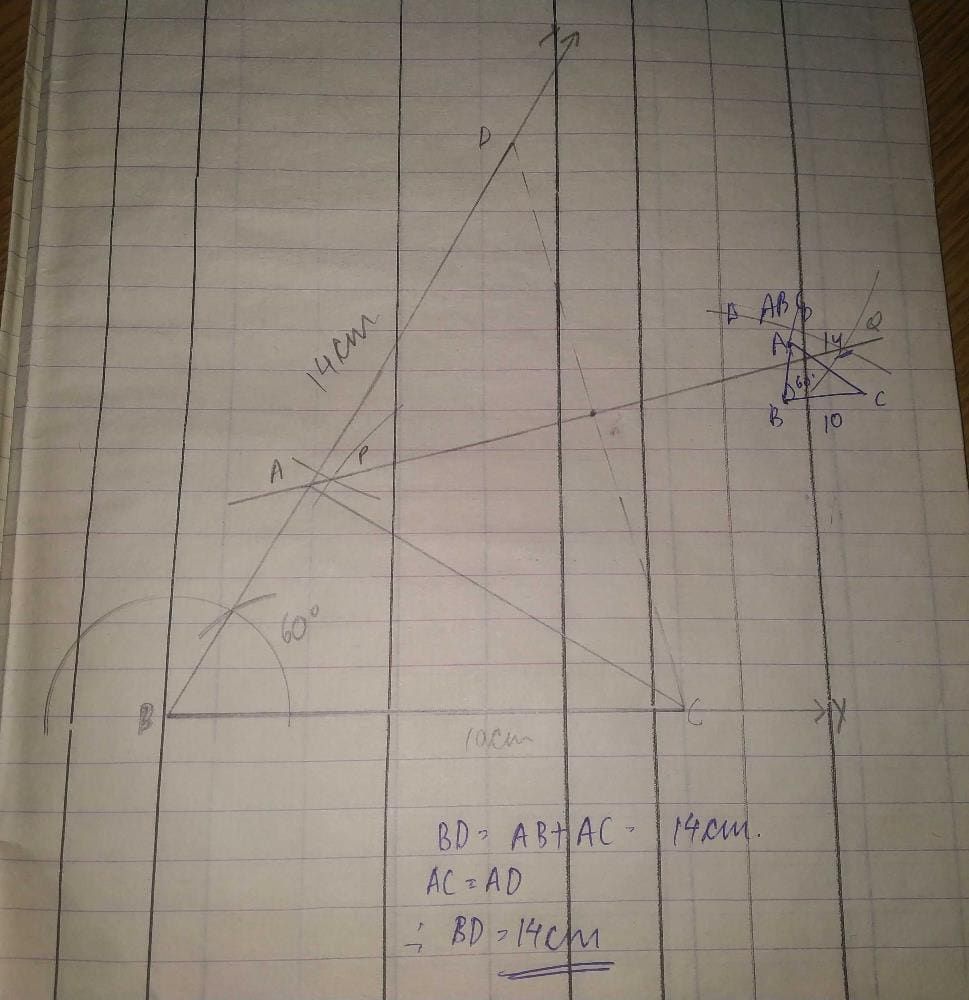 D
14cm
D AB
Q
A 14
60°
B C
10
A P
60°
B C Y
10cm
BD = AB + AC = 14cm.
AC = AD
∴ BD = 14cm